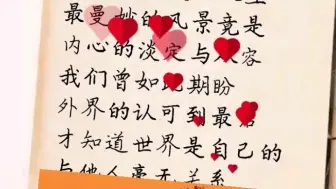 最曼妙的风景竟是
内心的淡定与从容
我们曾如此期盼
外界的认可到最后
才知道世界是自己的
与他人毫无关系